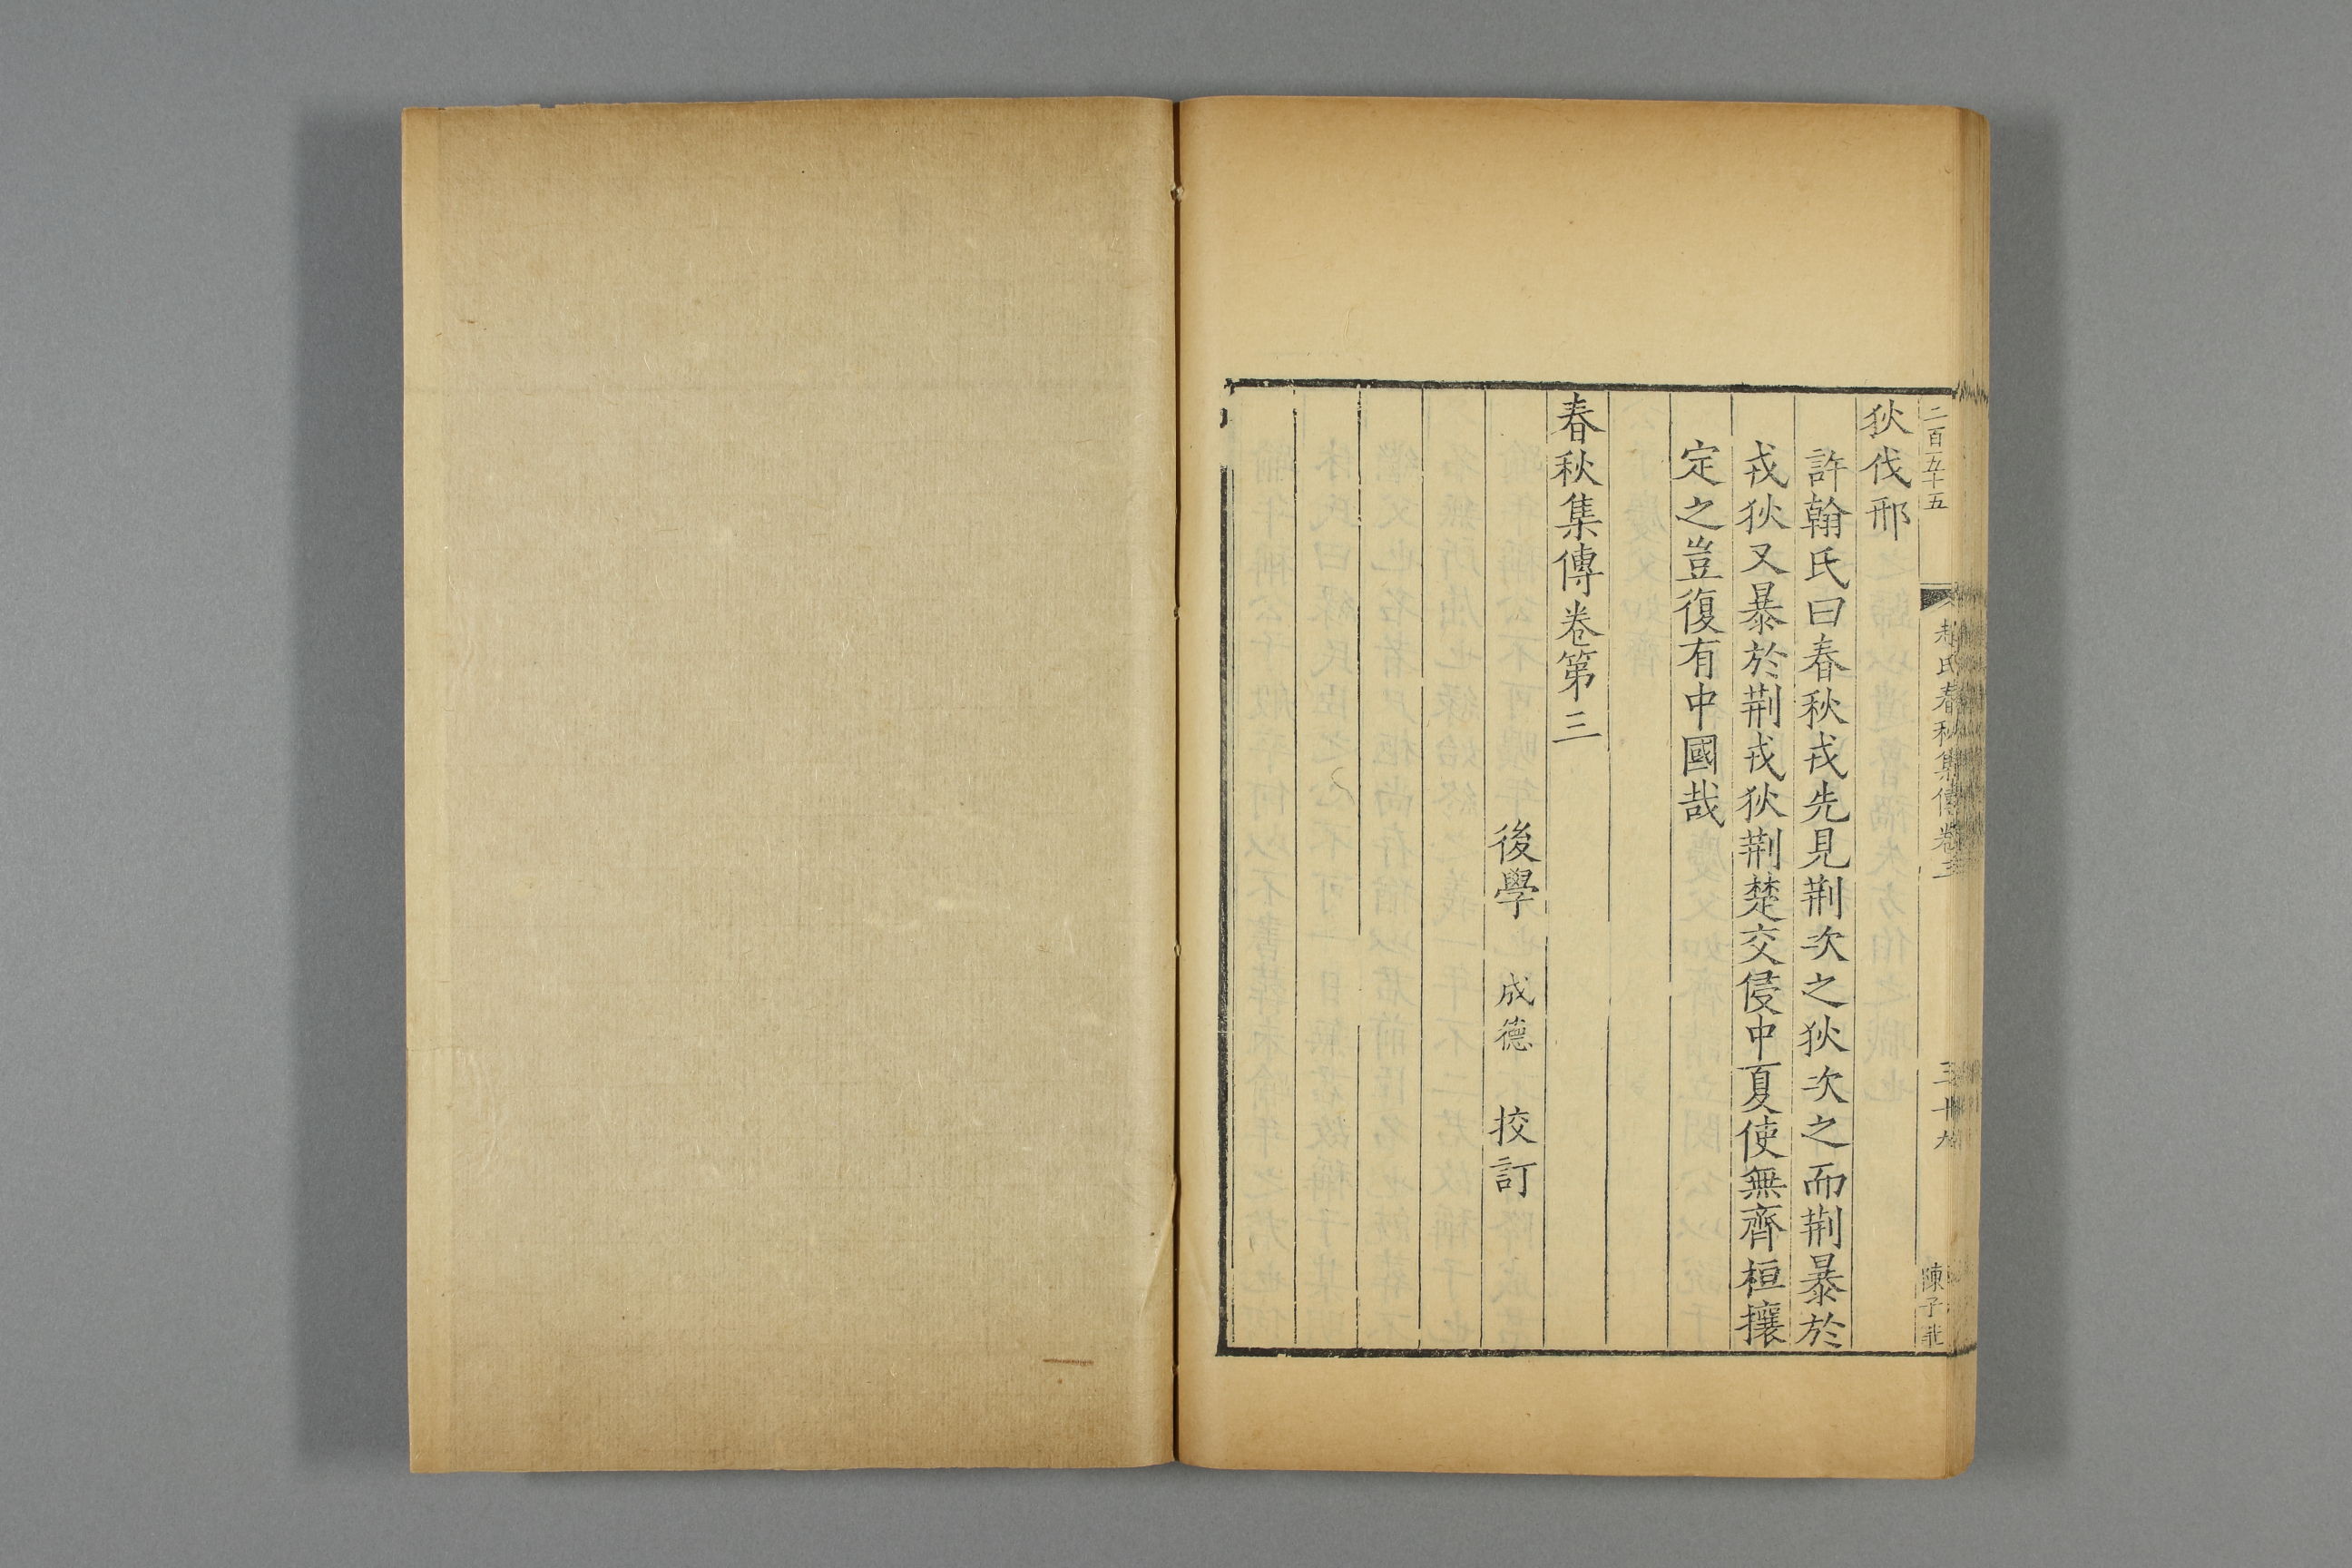 二百五十五
趙氏春秋集傳卷三
三十九
陳子
狄伐邢
許翰氏曰春秋戎先見荆次之狄次之而荆暴於
戎狄又暴於荆戎狄荆楚交侵中夏使無齊桓攘
定之豈復有中國哉
春秋集傳卷第三
後學 成德 挍訂